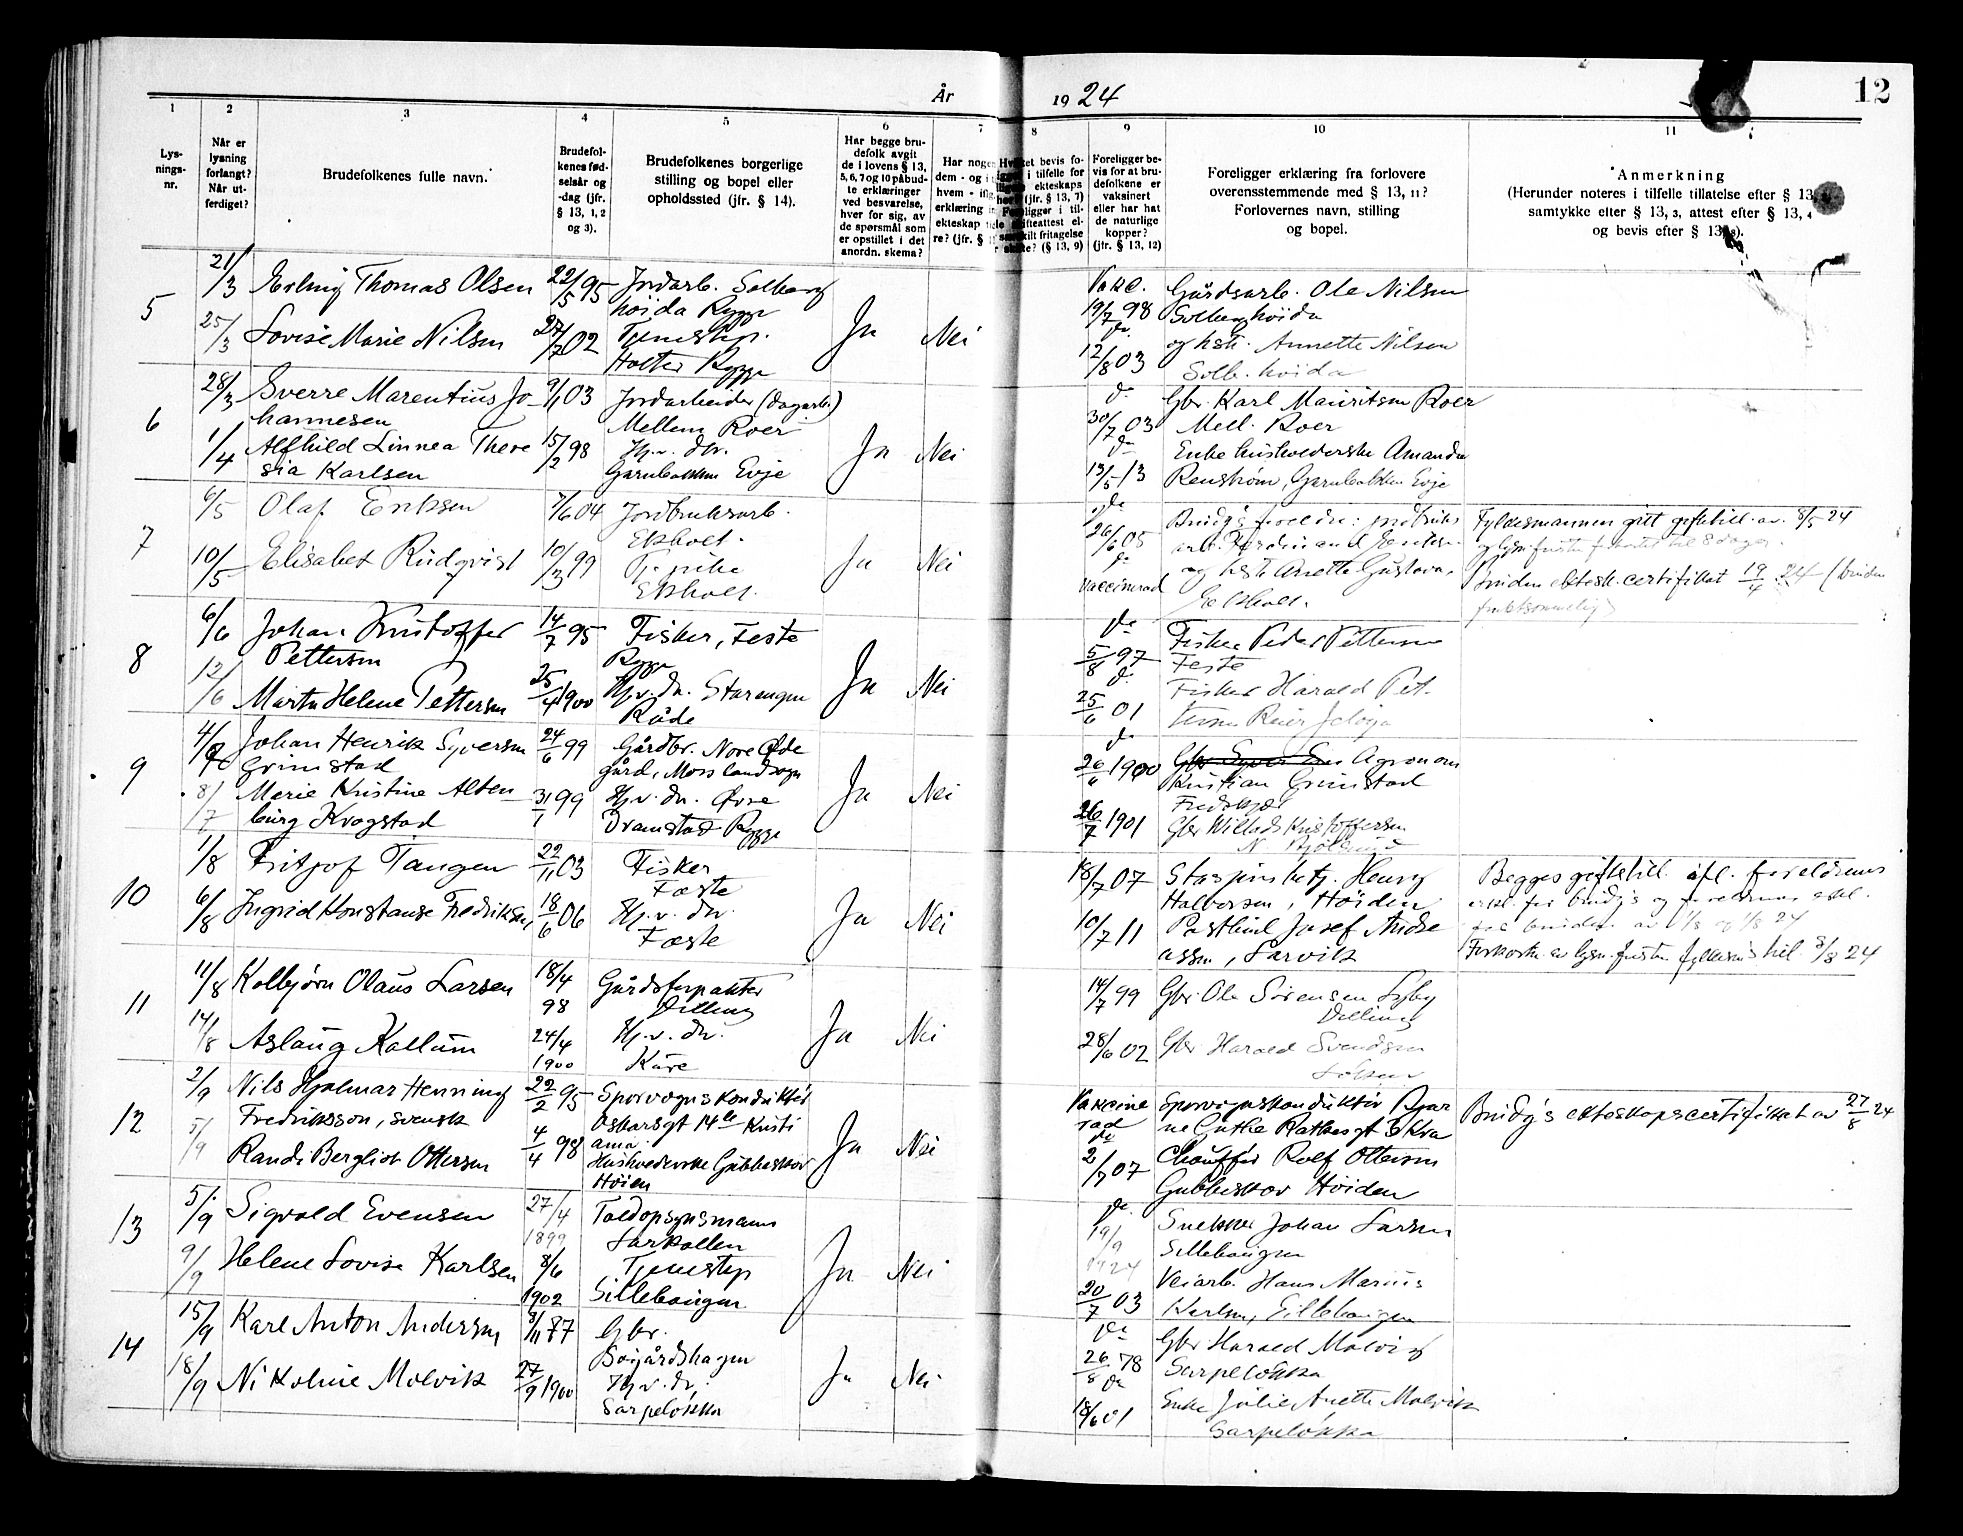 År 1924
12
1
2
3
4
5
6
7
8
9
10
11
Lys-
nings-
nr.
Når er
lysning
forlangt?
Når ut-
ferdiget?
Brudefolkenes fulle navn.
Brudefol-
kenes fød-
selsår og
-dag (jfr.
§ 13, 1, 2
og 3).
Brudefolkenes borgerlige
stilling og bopel eller
opholdssted (jfr. § 14).
Har begge bru-
defolk avgit
de i lovens § 13,
5, 6, 7 og 10 påbud-
te erklæringer
ved besvarelse,
hver for sig, av
de spørsmål som
er opstillet i det
anordn. skema?
Har nogen
dem - og i
hvem -
erklæring
ekteskap
re? (jfr. §
bevis fo-
i tilfelle for
ekteskaps
(jfr. § 13, 7)
i til-
skifteattest el-
fritagelse
(§ 13, 9)
Foreligger be-
vis for at bru-
defolkene er
vaksinert
eller har hat
de naturlige
kopper?
(jfr. § 13, 12)
Foreligger erklæring fra forlovere
overensstemmende med § 13, 11?
Forlovernes navn, stilling
og bopel.
Anmerkning
(Herunder noteres i tilfelle tillatelse efter § 13
samtykke efter § 13, 3, attest efter § 13, 4
og bevis efter § 13, 8).
5
21/3
Erling Thomas Olsen
22/5 95
Jordarb. Solberg
höida Rygge
25/3
Lovise Marie Nilsen
27/7 02
Tjenestep.
Holter Rygge
Ja
Nei
Vakc.
19/7 98
do
12/8 03
Gårdsarb. Ole Nilsen
Solberghöida
og hstr. Annette Nilsen
Solb. höida
6
28/3
Sverre Marentius Jo
hannesen
9/1 03
Jordarbeider (dagarb.)
Mellem Roer
1/4
Alfhild Linnea There
sia Karlsen
15/2 98
Hj.v. dtr.
Garnbakken Evje
Ja
Nei
do
30/7 03
do
13/5 13
Gbr. Karl Mauritsen Roer
Mell. Roer
Enke husholderske Amanda
Renström, Garnbakken Evje
7
6/5
Olaf Eriksen
7/6 04
Jordbruksarb.
Ekholt.
10/5
Elisabet Rudqvist
10/3 99
Ekholt.
Ja
Nei
do
26/6 05
do
Vaccinerad
Brudg's foreldre: jordbruks
arb. Ferdinand Eriksen
og hstr Anette Gustava,
Ekholt.
Fylkesmannen gitt giftetill. av 8/5 24
og lysn.frist forkortet til 8 dager.
Bruden ektesk.certifikat 19/4 24 (bruden
fruktsommelig)
8
6/6
Johan Kristoffer
Pettersen
14/7 95
Fisker, Feste
Rygge
12/6
Marta Helene Pettersen
25/4 1900
Hj.v. dtr. Starengen
Råde
Ja
Nei
do
5/8 97
do
25/6 01
Fisker Peder Pettersen
Feste
Fisker Harald Pet-
tersen Reier Jeløya
9
4/7
Johan Henrik Syversen
Grimstad
24/6 99
Gårdbr. Nore Øde
gård, Moss landsogn
8/7
Marie Kristine Alten
burg Krogstad
31/1 99
Hj.v. dtr. Øvre
Dramstad Rygge
Ja
Nei
do
26/6 1900
26/7 1901
Agronom
Kristian Grimstad
Fredskjær
Gbr Willads Kristoffersen
10
1/8
Fritjof Tangen
22/11 03
Fisker
Fæste
6/8
Ingrid Konstanse Fredriksen,
18/6 06
Hj.v. dtr.
Fæste
Ja
Nei
18/7 07
10/7 11
Staspinsbetj. Henry
Halvorsen, Höiden
Postbud Josef Andre
assen, Larvik
Begges giftetill. afl. foreldrenes
erkl. for brudg's og foreldrenes erkl.
for bruden av 1/8 og 1/8 24
Forkortn. av lysn.fristen fylkesm's till. 2/8 24
11
11/8
Kolbjörn Olaus Larsen
18/4
98
Gårdsforpakter
Dilling
14/8
Aslaug Kallum
24/4
1900
Hj.v. dtr.
Kure
Ja
Nei
14/7 99
28/6 02
Gbr. Ole Sörensen Lyby
Dilling
Gbr Harald Svendsen
12
2/9
Nils Hjalmar Henning
Fredriksson, svensk
22/2 95
Sporvognskonduktör
Oskarsgt 14 Kristi
ania
5/9
Randi Bergliot Ottersen
4/4 98
Husholderske Gubbeskov
Höien
Ja
Nei
Vaccine
rad
do
2/7 07
Sporvognskonduktör Bjar
ne Guthe Rathkesgt 5 Kra
Chauffør Rolf Ottersen
Gubbeskov Höiden
Brudg's ekteskapscertifikat av 27/8 24
13
5/9
Sigvald Evensen
27/4
1899
Toldopsynsmann
Larkollen
9/9
Helene Lovise Karlsen
8/6
1902
Tjenestep
Sillebaugen
Ja
Nei
do
19/9
1924
20/7 03
Snekker Johan Larsen
Sillebaugen
Veiarb. Hans Marius
Karlsen, Sillebaugen
14
15/9
Karl Anton Andersen
3/11 77
Gbr.
Bøigårdshagen
18/9
Nikoline Molvik
27/9 1900
Hj.v. dtr.
Sarpeløkka
Ja
Nei
do
26/8 78
do
18/6 01
Gbr Harald Molvig
Sarpeløkka
Enke Julie Anette Molvik
Sarpeløkka